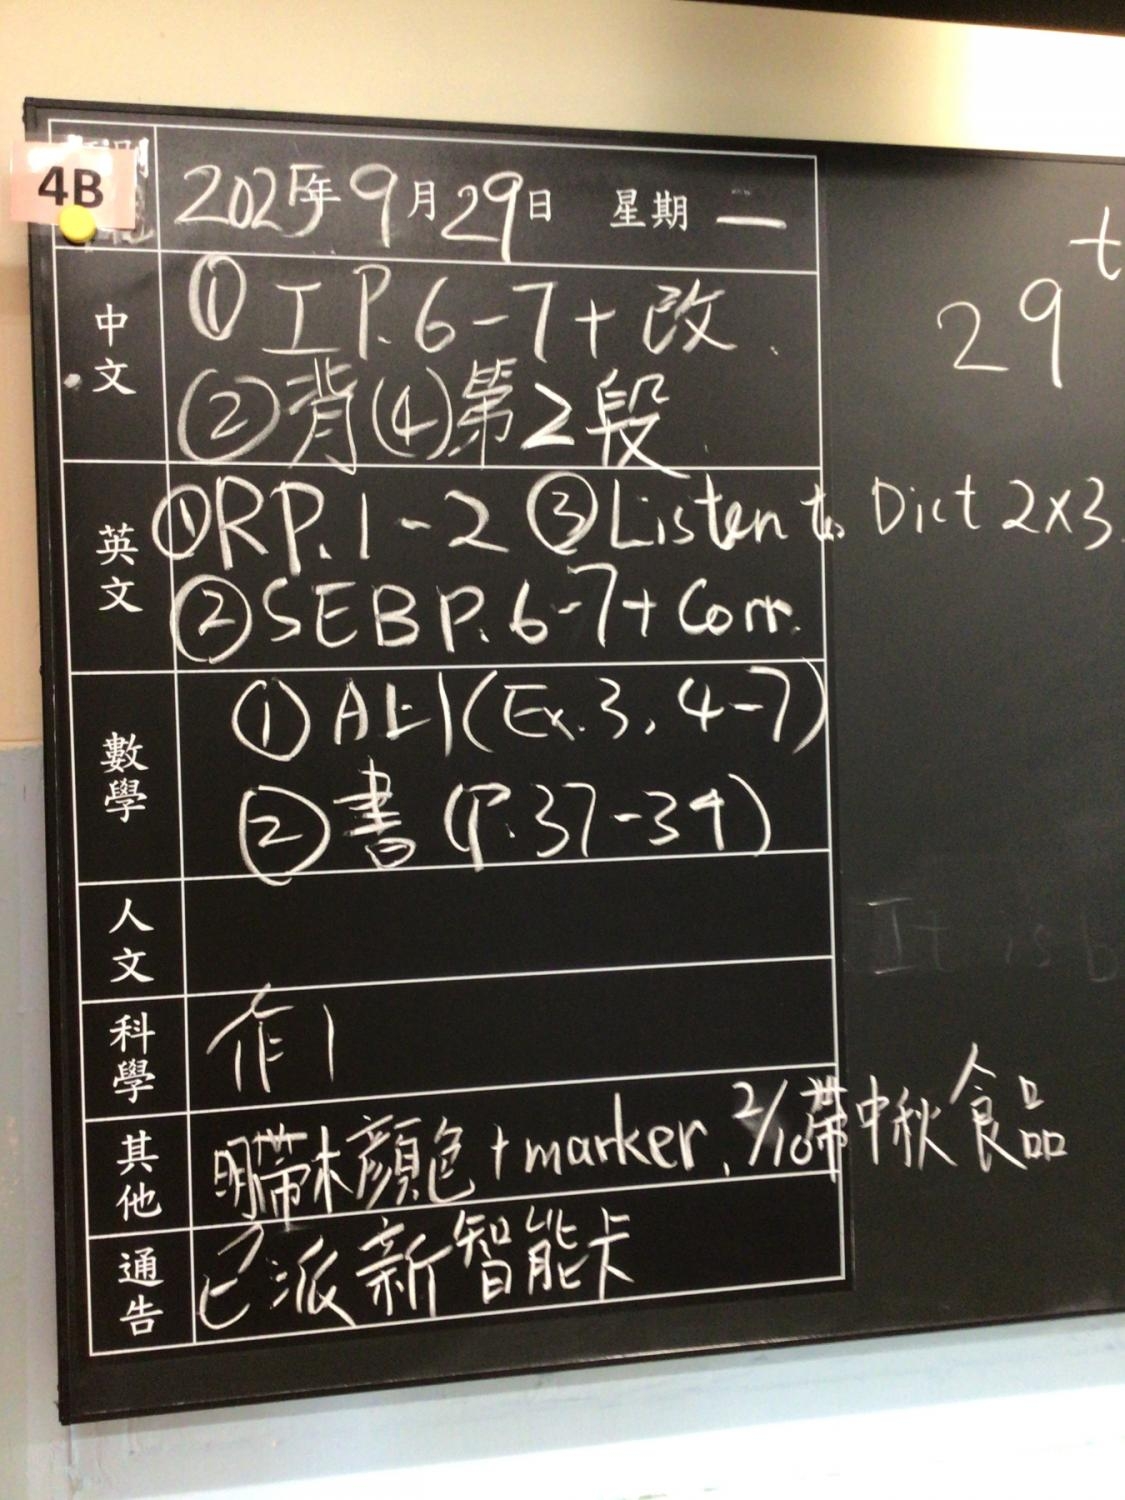 4B
2025年9月29日 星期一
中文
① 工 P.6-7+改.
② 背(4)第2段
英文
① RP.1-2 ③ Listen to Dict 2x3.
② SEB P.6-7+Corr.
數學
① A1-1(Ex.3, 4-7)
② 書(P.37-39)
人文
科學
作1
其他
明帶木顏色+marker, 2/10帶中秋食品
通告
已派新智能卡
29 t
It is b